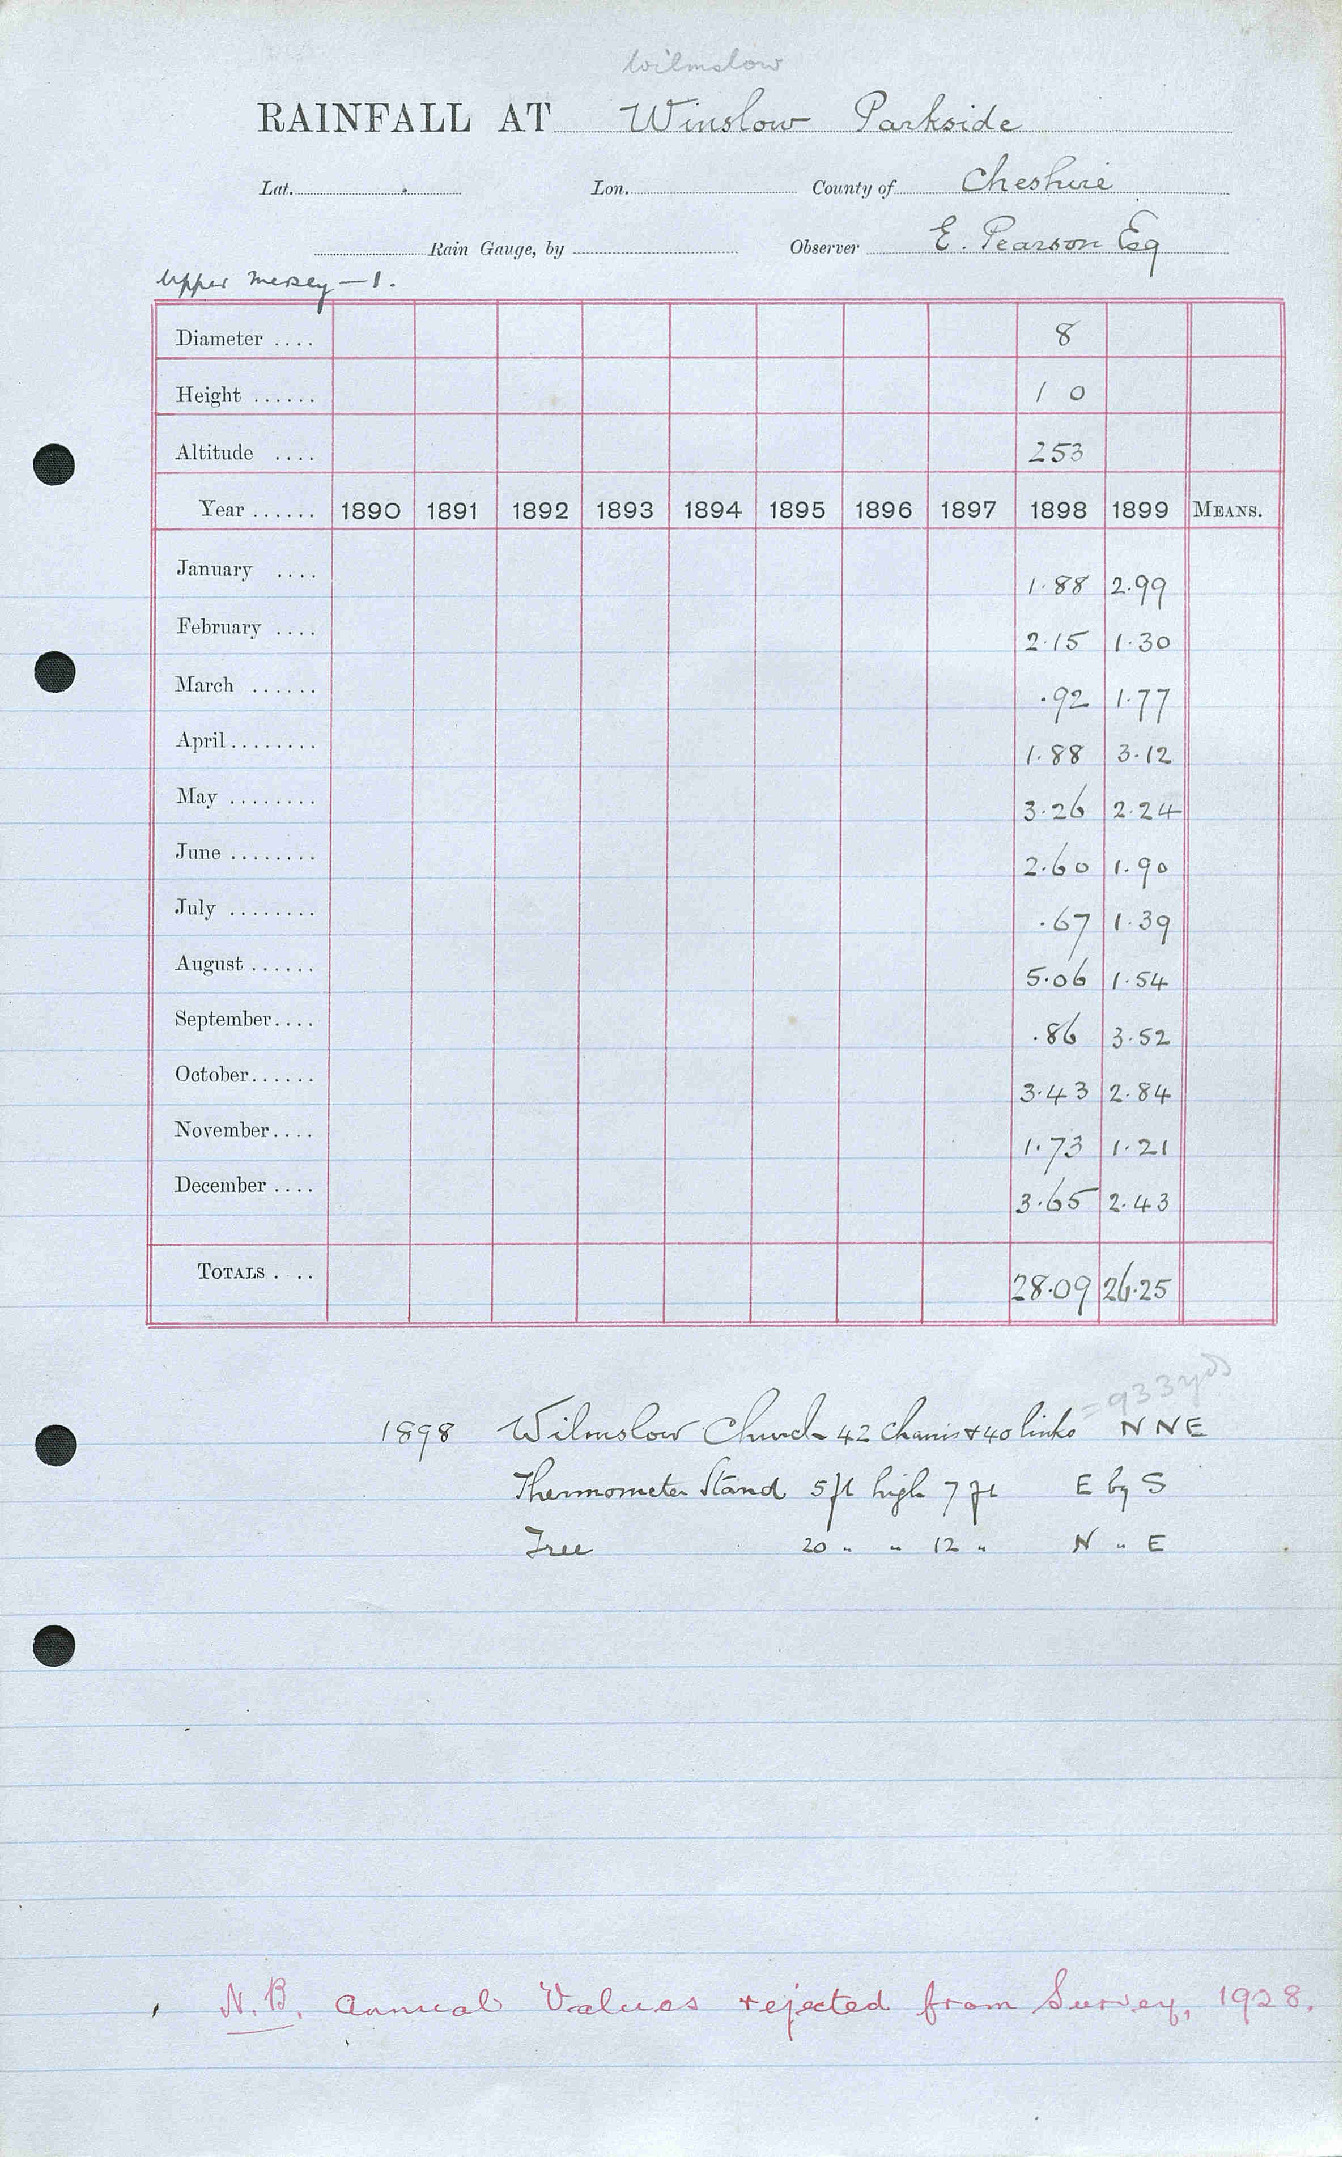 Wilmslow
RAINFALL AT Winslow Parkside
Lat. Lon. County of Cheshire
Rain Gauge, by Observer E. Pearson Esq
Upper Mersey - 1.
Diameter .... 8
Height ...... 1 0
Altitude .... 253
Year ...... 1890 1891 1892 1893 1894 1895 1896 1897 1898 1899 MEANS.
January .... 1.88 2.99
February .... 2.15 1.30
March ...... .92 1.77
April........ 1.88 3.12
May ........ 3.26 2.24
June ........ 2.60 1.90
July ........ .67 1.39
August ...... 5.06 1.54
September.... .86 3.52
October...... 3.43 2.84
November.... 1.73 1.21
December .... 3.65 2.43
TOTALS . .. 28.09 26.25
= 933 yds
1898 Wilmslow Church 42 chains + 40 links NNE
Thermometer Stand 5 ft high 7 ft E by S
Tree 20 " " 12 " N " E
N.B. Annual Values rejected from Survey, 1928.